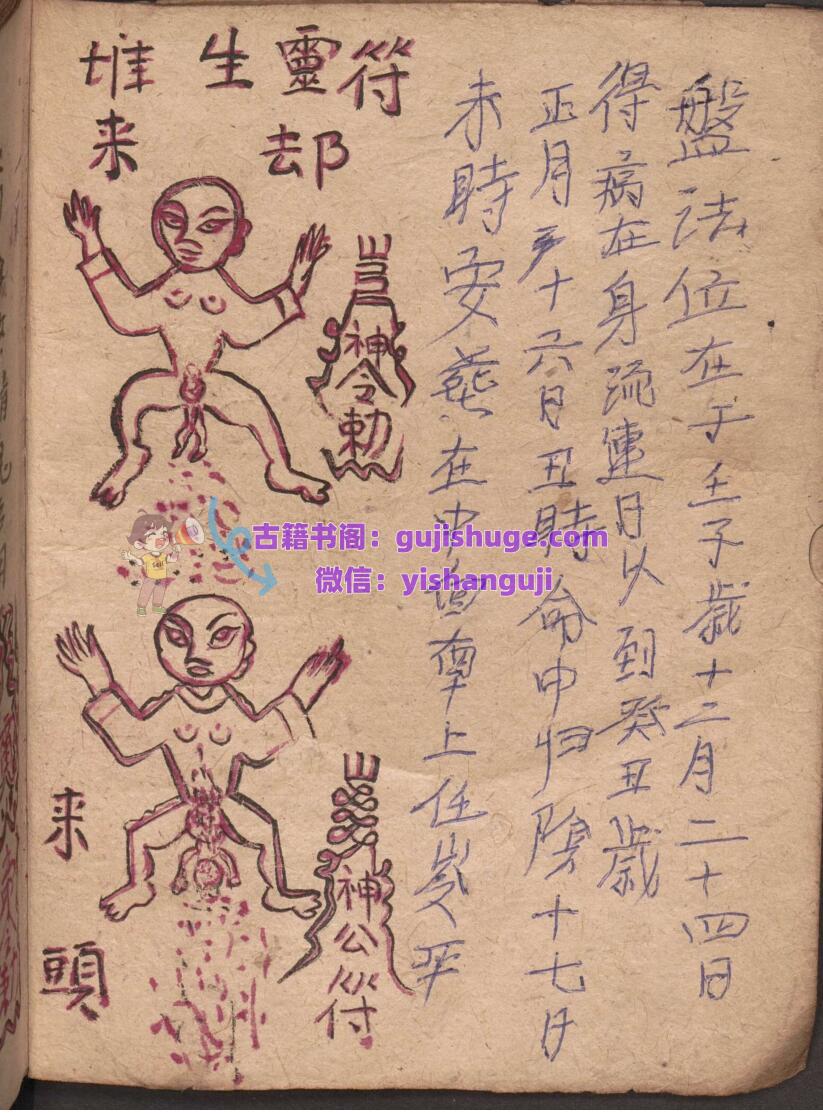 盤法位在于壬子歲十二月二十四日
得病在身流連日以到癸丑歲
正月十六日丑時命中归陰十七日
未時安葬在中 上任
符靈生堆
却来
神令勅
来頭
神公符
古籍书阁：gujishuge.com
微信：yishanguji